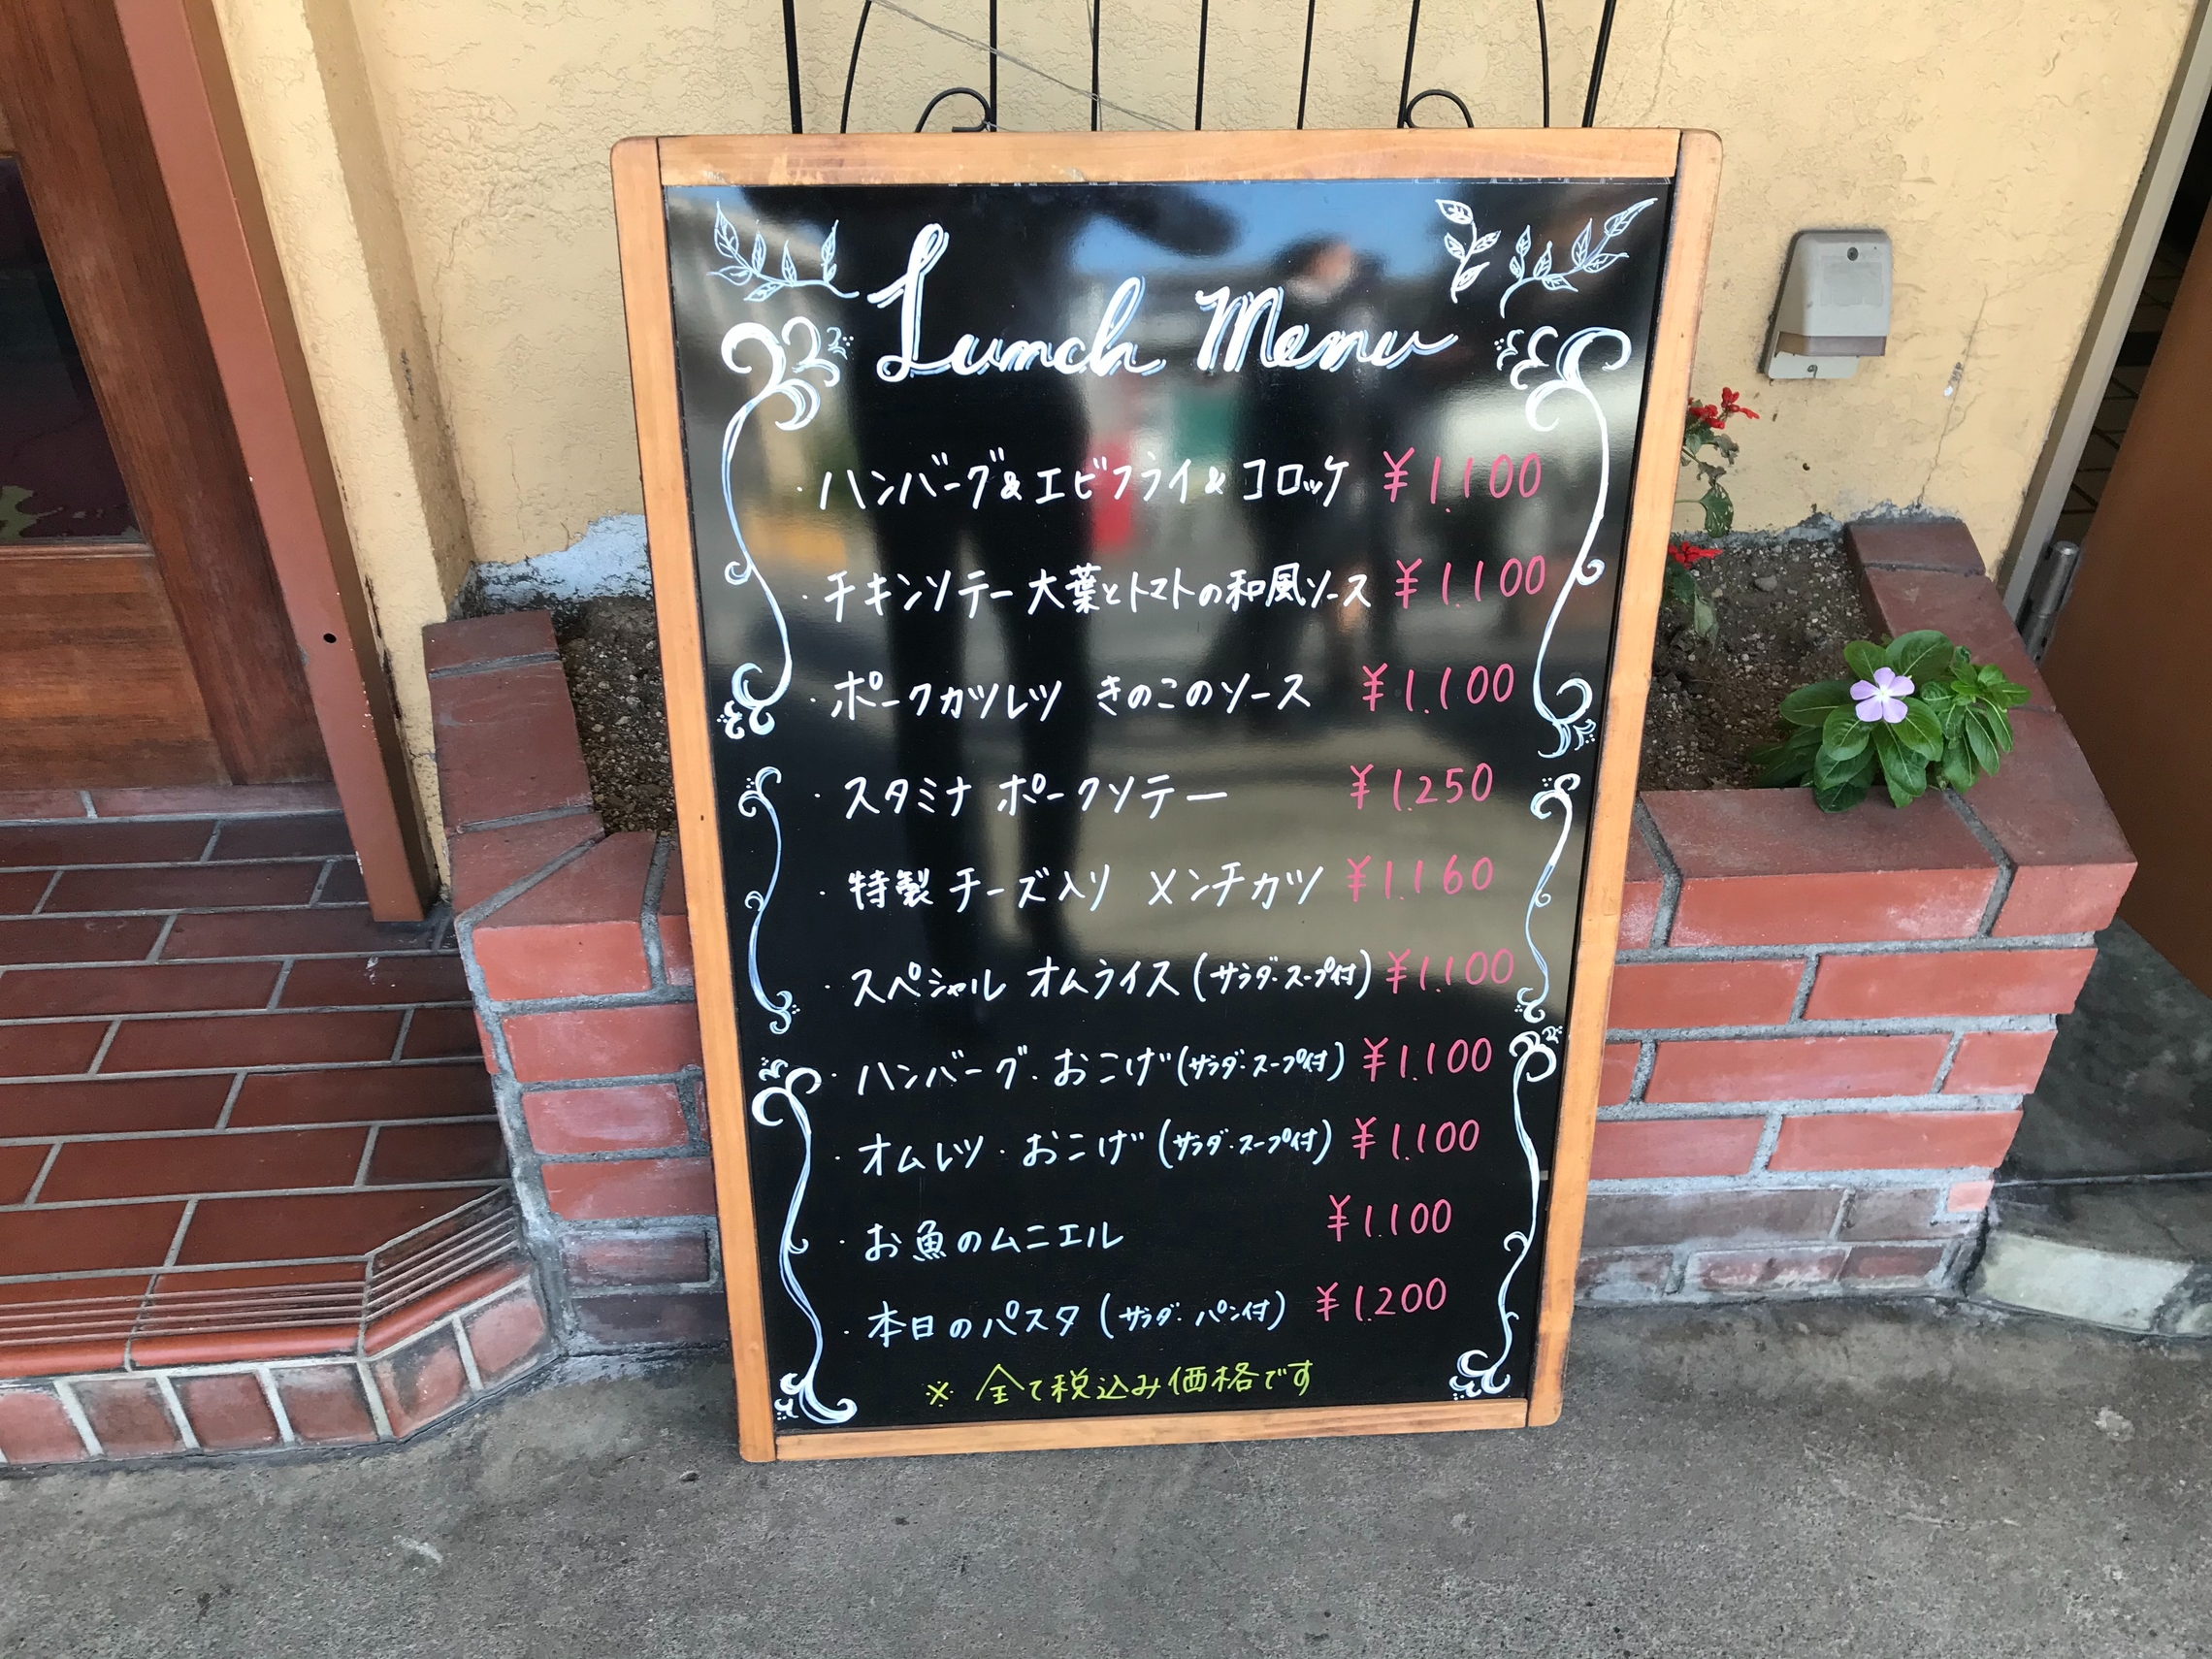 Lunch Menu
・ハンバーグ&エビフライ&コロッケ ¥1.100
・チキンソテー大葉とトマトの和風ソース ¥1.100
・ポークカツレツ きのこのソース ¥1.100
・スタミナ ポークソテー ¥1.250
・特製 チーズ入り メンチカツ ¥1.160
・スペシャル オムライス(サラダ・スープ付) ¥1.100
・ハンバーグ・おこげ(サラダ・スープ付) ¥1.100
・オムレツ・おこげ(サラダ・スープ付) ¥1.100
・お魚のムニエル ¥1.100
・本日のパスタ(サラダ・パン付) ¥1.200
※ 全て税込み価格です